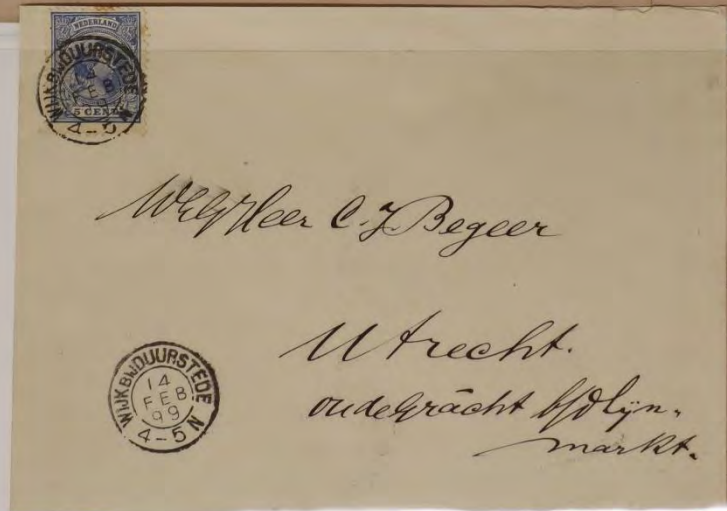 NEDERLAND
5 CENT
WIJK BIJ DUURSTEDE
14 FEB
4-5 N
WEG Heer C. J. Begeer
Utrecht.
oude Gracht b/d Lijn-
markt.
WIJK BIJ DUURSTEDE
14
FEB
99
4-5 N